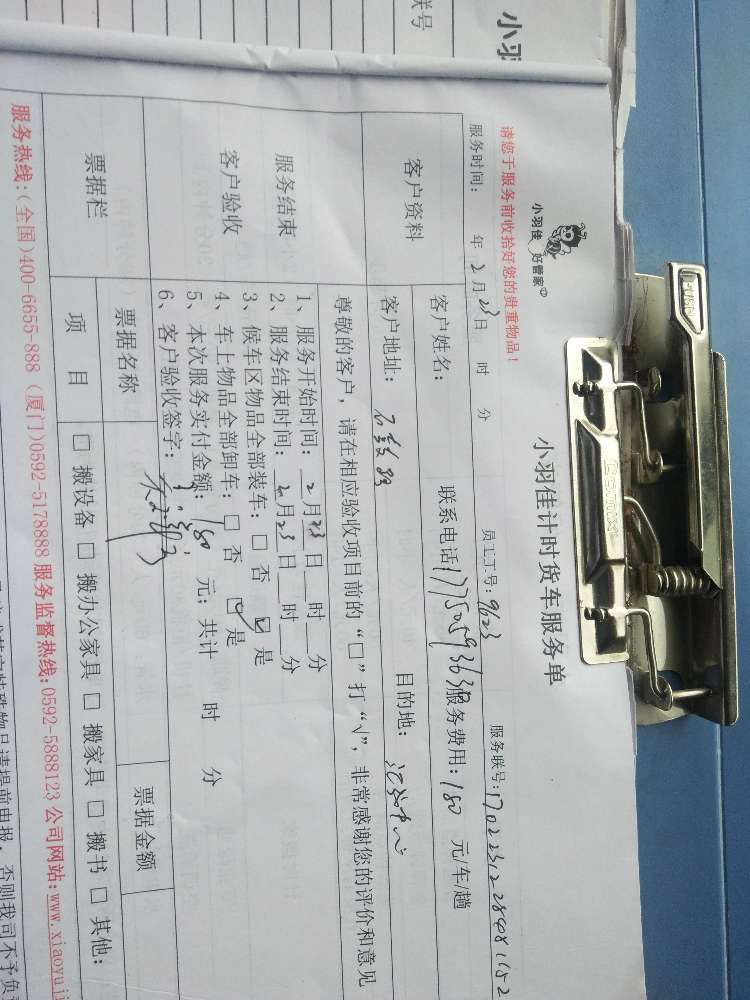 联号
小羽
小羽佳 好管家
小羽佳计时货车服务单
请您于服务前收拾好您的贵重物品！
员工工号：9623
服务联号：170223122848 1652
服务时间： 年 2 月 23 日 时 分
客户资料
客户姓名：
联系电话：17750593638
服务费用：180 元/车/趟
客户地址：
目的地：
服务结束
客户验收
尊敬的客户，请在相应验收项目前的“□”打“√”，非常感谢您的评价和意见
1、服务开始时间：2月23日__时__分
2、服务结束时间：2月23日__时__分
3、候车区物品全部装车：□ 否 ☑ 是
4、车上物品全部卸车：□ 否 ☑ 是
5、本次服务实付金额：180 元；共计 时 分
6、客户验收签字：
票据栏
票据名称
票据金额
项 目
□ 搬设备 □ 搬办公家具 □ 搬家具 □ 搬书 □ 其他：
服务热线：(全国)400-6655-888 (厦门)0592-5178888 服务监督热线：0592-5888123 公司网站：www.xiaoyuji
殊物品请提前申报，否则我司不予负